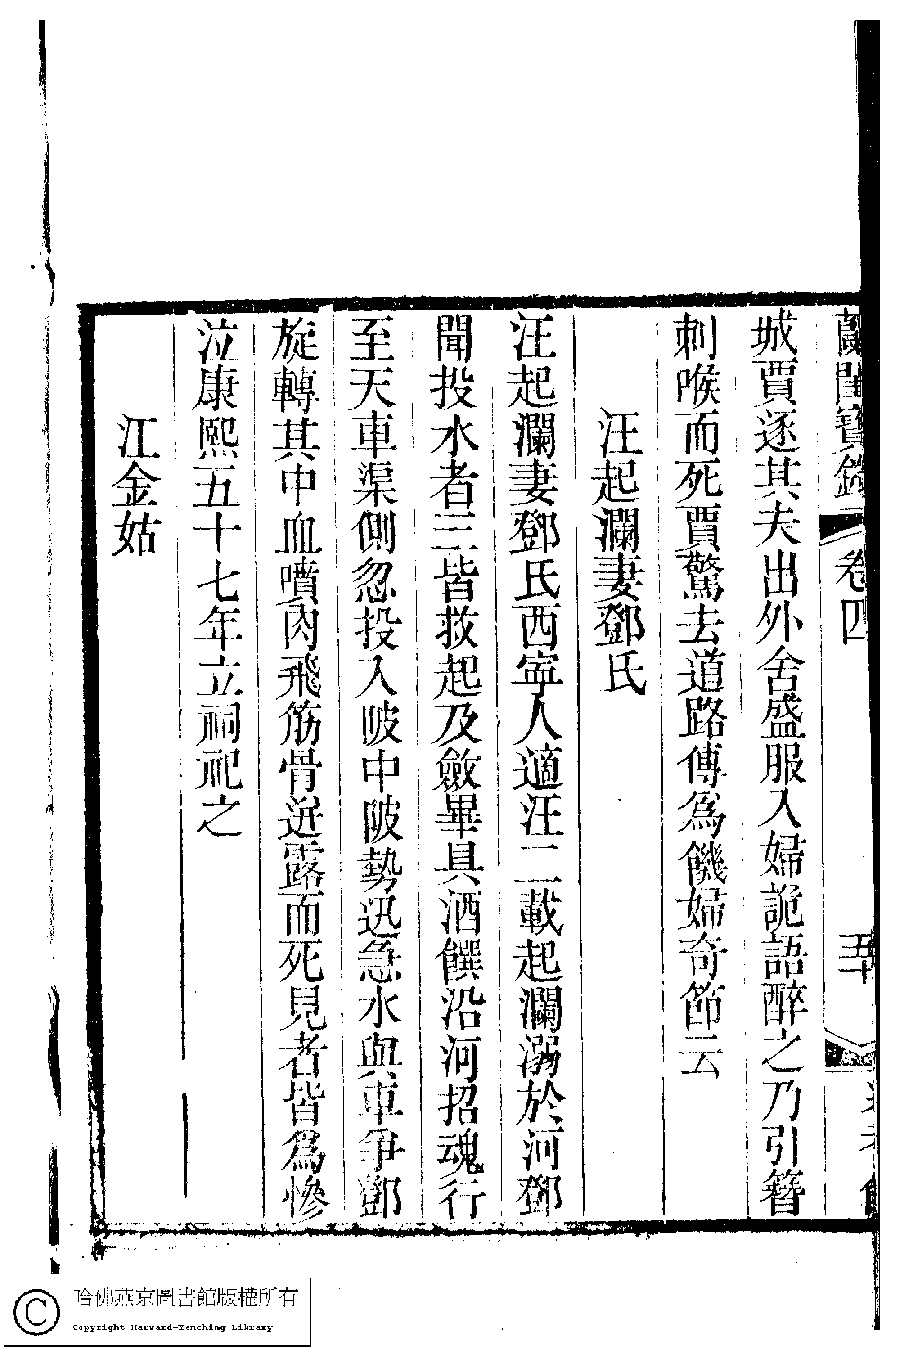 蘭閨寶錄 卷四 五十
城賈逐其夫出外舍盛服入婦詭語醉之乃引簪
刺喉而死賈驚去道路傳爲饑婦奇節云
汪起瀾妻鄧氏
汪起瀾妻鄧氏西寧人適汪二載起瀾溺於河鄧
聞投水者三皆救起及斂畢具酒饌沿河招魂行
至天車渠側忽投入陂中陂勢迅急水與車爭鄧
旋轉其中血噴肉飛筋骨迸露而死見者皆爲慘
泣康熙五十七年立祠祀之
江金姑
哈佛燕京圖書館版權所有
Copyright Harvard-Yenching Library